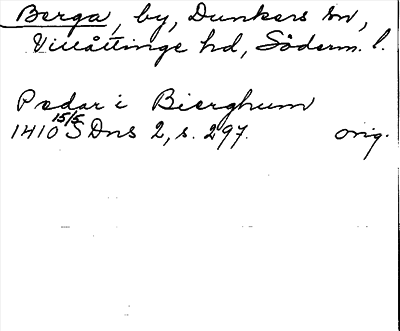 Berga, by, Dunkers sn,
Villåttinge hd, Söderm. l.
Pædar i Bierghum
1410 15/5 SDns 2, s. 297. orig.